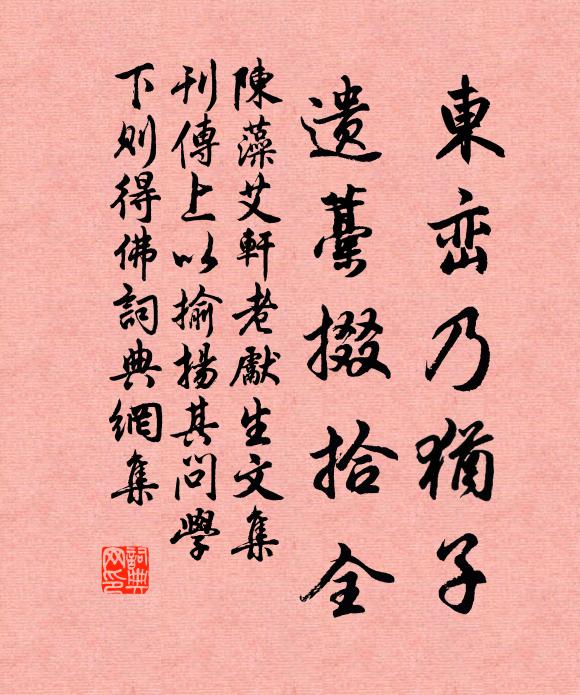 東峦乃猶子
遗藁掇拾全
陳藻艾軒老獻生文集
刊傳上以揄揚其問學
下则得佛詞典網集
詞典网印